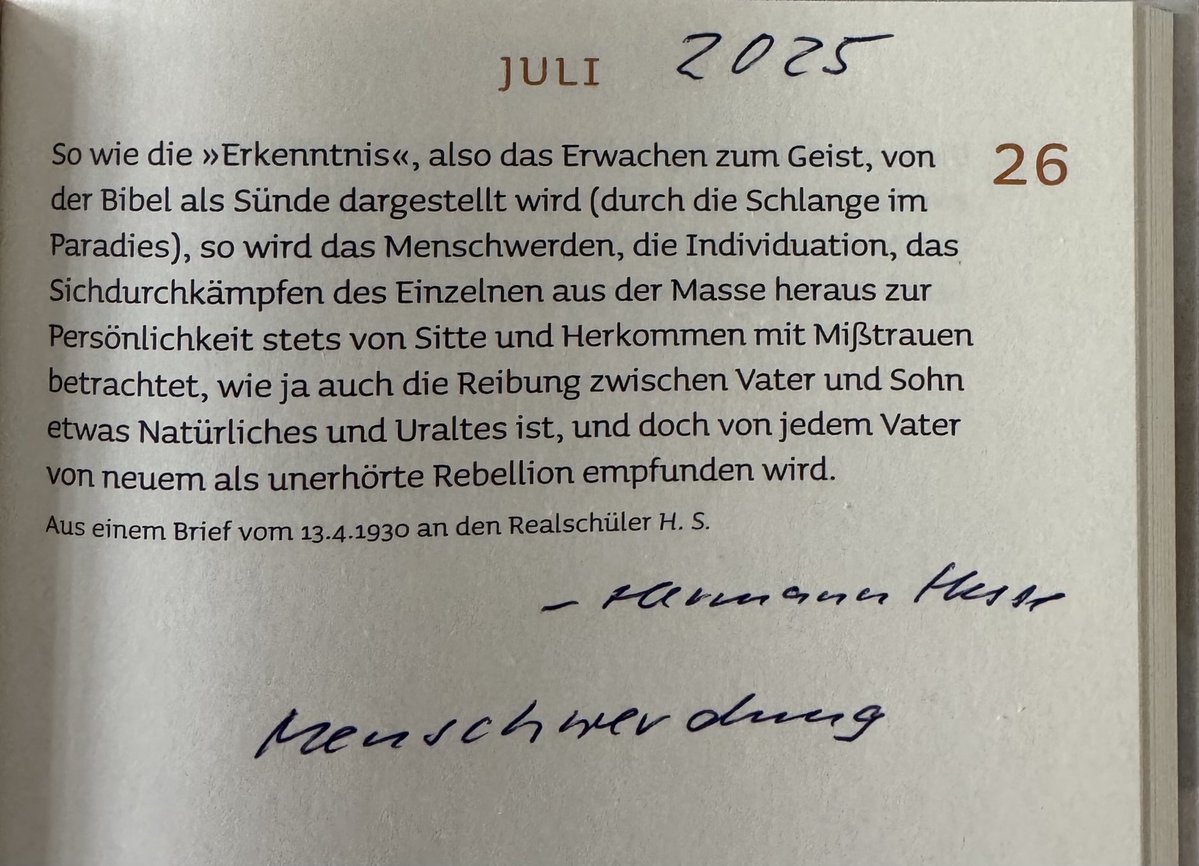 JULI 2025
So wie die »Erkenntnis«, also das Erwachen zum Geist, von 26
der Bibel als Sünde dargestellt wird (durch die Schlange im
Paradies), so wird das Menschwerden, die Individuation, das
Sichdurchkämpfen des Einzelnen aus der Masse heraus zur
Persönlichkeit stets von Sitte und Herkommen mit Mißtrauen
betrachtet, wie ja auch die Reibung zwischen Vater und Sohn
etwas Natürliches und Uraltes ist, und doch von jedem Vater
von neuem als unerhörte Rebellion empfunden wird.
Aus einem Brief vom 13.4.1930 an den Realschüler H. S.
– Hermann Hesse
Menschwerdung